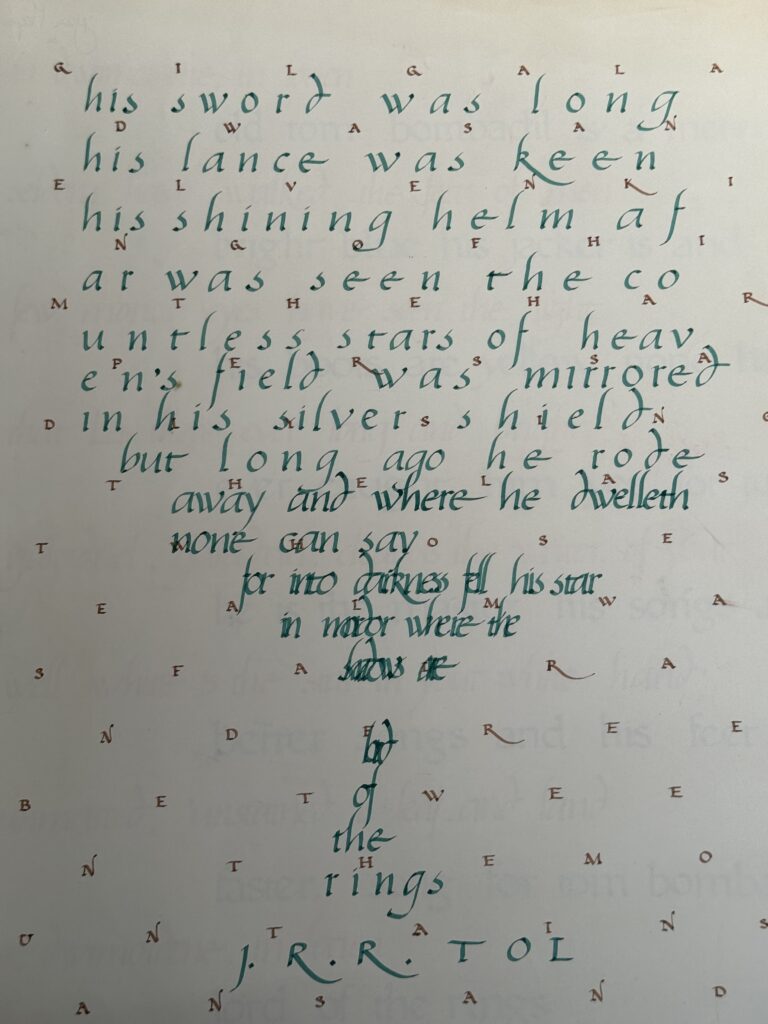 G I L G A L A
his sword was long
D W A S A N
his lance was keen
E L V E N K I
his shining helm af
N G O F H I
ar was seen the co
M T H E H A R
untless stars of heav
P E R S S A
en's field was mirrored
D L Y S I N G
in his silver shield
but long ago he rode
T H E L A S
away and where he dwelleth
none can say
T W H O S E
for into darkness fell his star
E A L M W A
in mordor where the
shadows are
S F A I R A
N D F R E E
lord
B E T W E E
of
the
N T H E M O
rings
U N T A I N S
J. R. R. TOL
A N S A N D